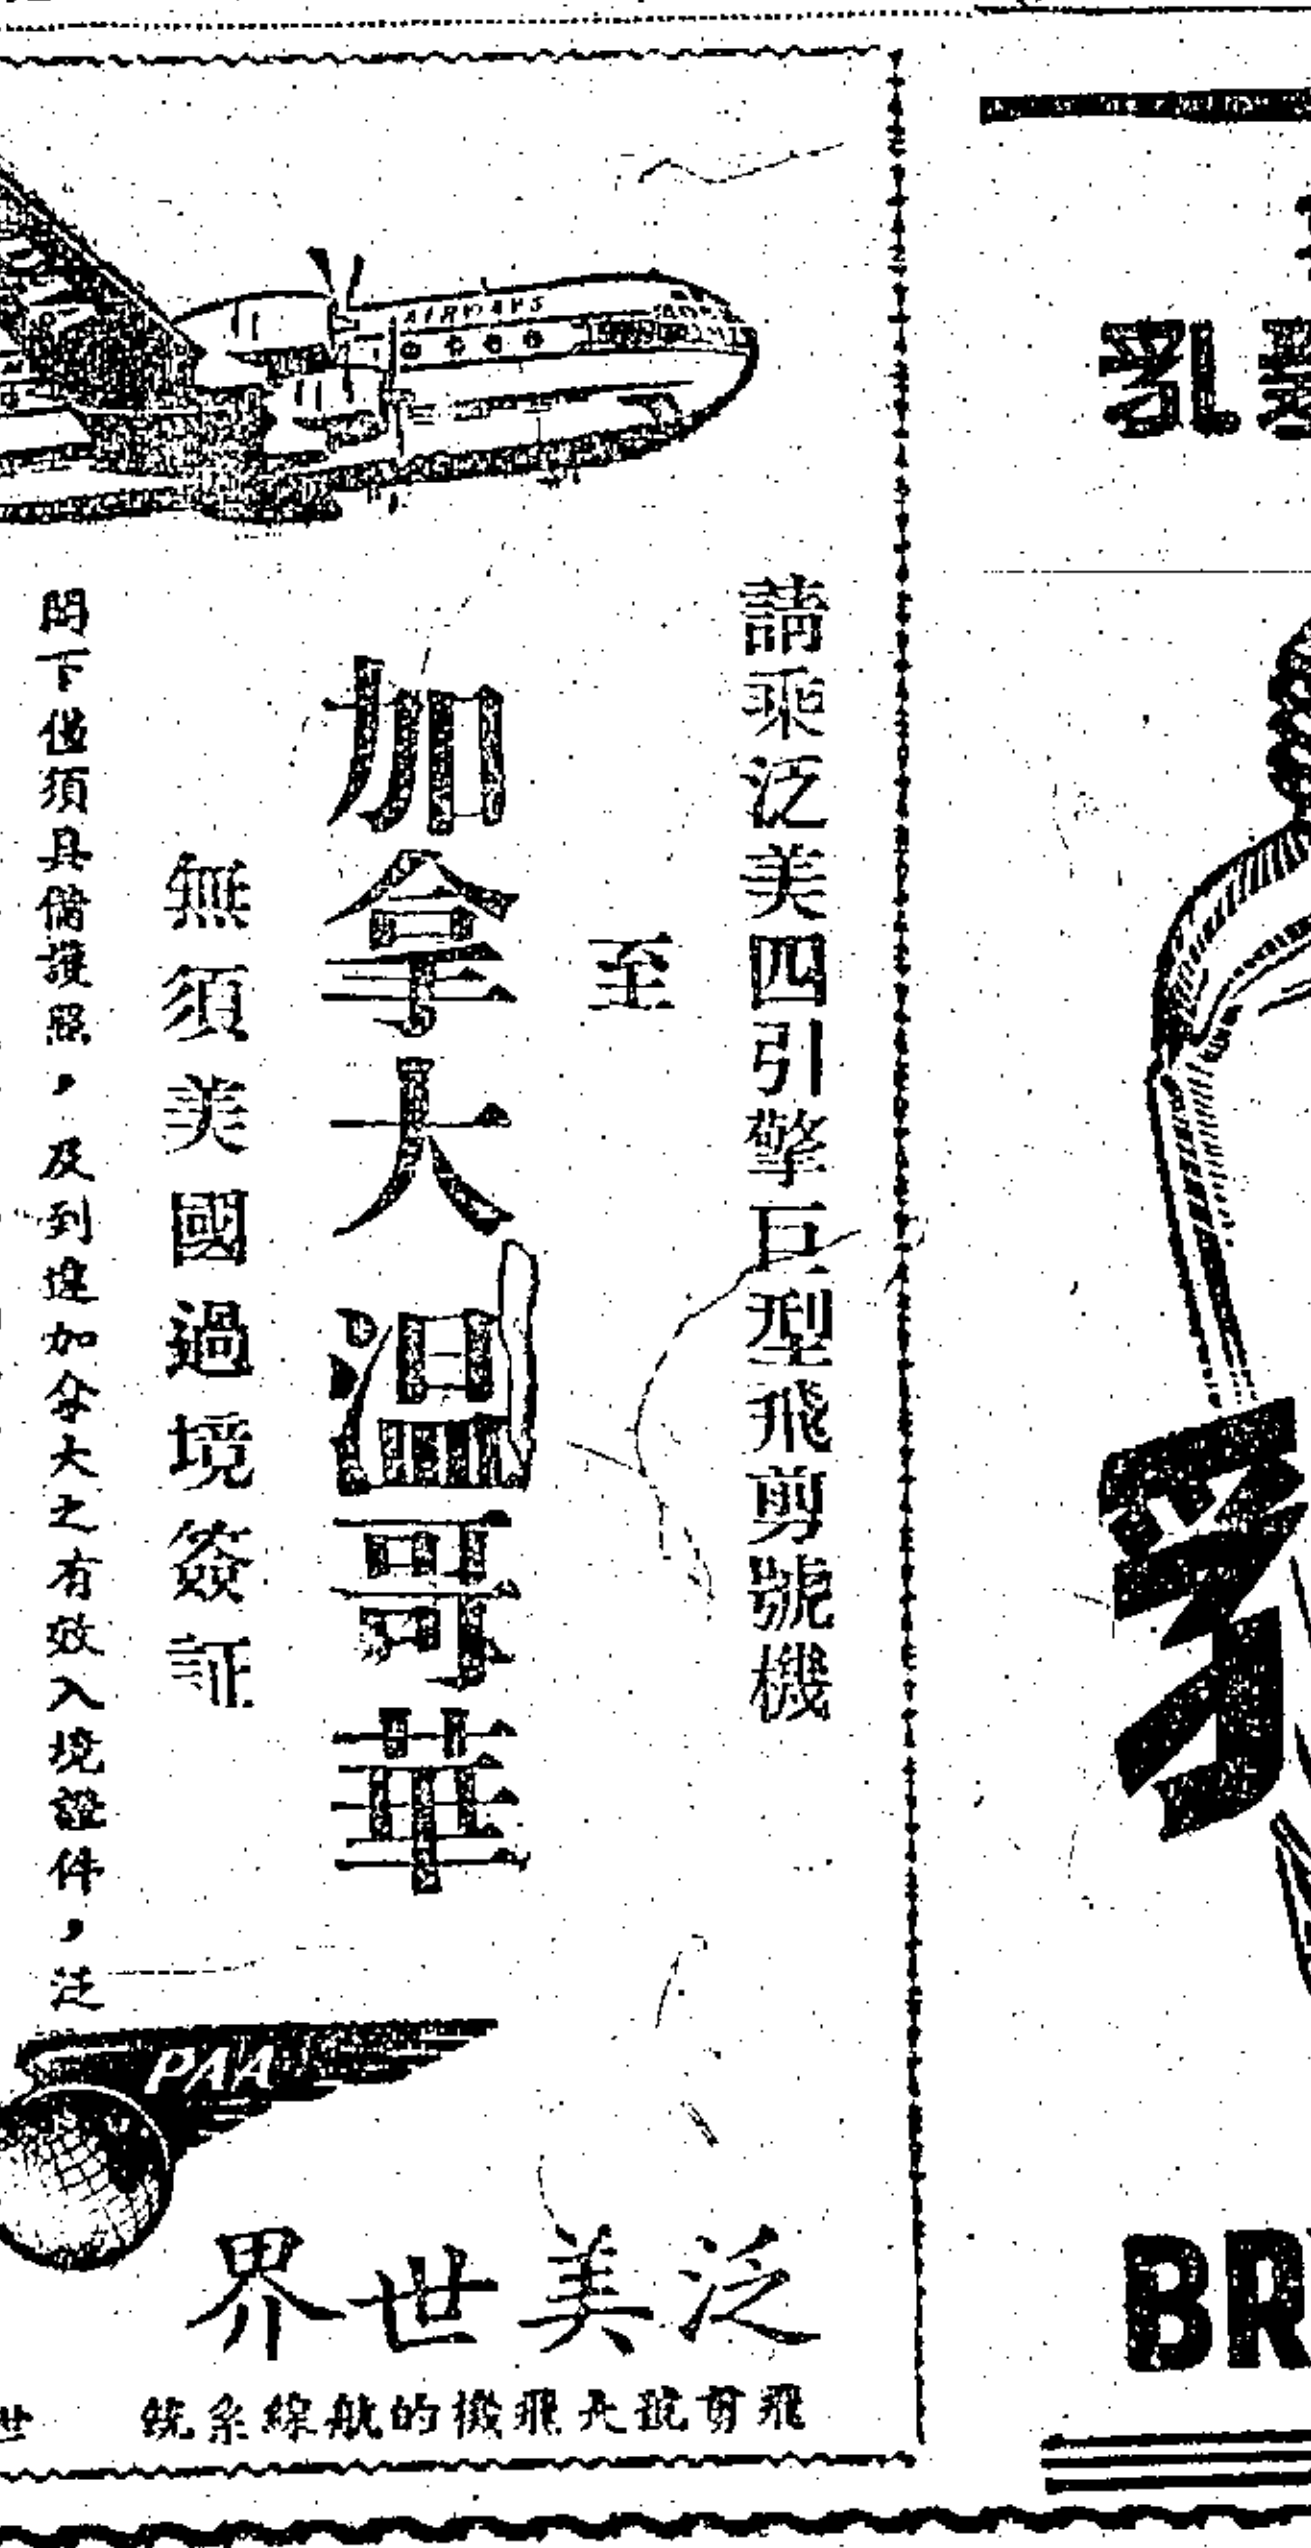 請乘泛美四引擎巨型飛剪號機
至
加拿大溫哥華
無須美國過境簽証
閣下僅須具備護照，及到達加拿大之有效入境證件，泛
AIRWAYS
PAA
泛美世界
飛剪號大飛機的航線系統
世
乳
乳
BR